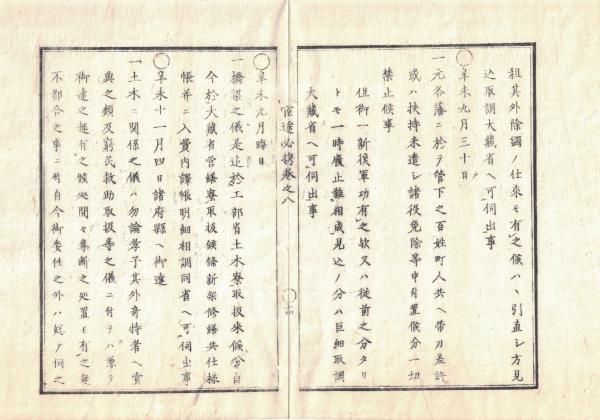 租其外除蠲ノ仕来モ有之候ハヽ引直シ方見
込取調大藏省ヘ可伺出事
〇辛未九月三十日
一元各藩ニ於テ管下之百姓町人共ヘ帯刀差許
或ハ扶持米遣シ諸役免除等申付置候分一切
禁止候事
但御一新後軍功有之欤又ハ従前之分タリ
トモ一時廃止難相成見込ノ分ハ巨細取調
大藏省ヘ可伺出事
官途必携巻之八
〇十四
〇辛未九月晦日
一橋梁之儀是迄於工部省土木寮取扱来候分自
今於大藏省営繕寮取扱候條新架修繕共仕様
帳并ニ入費内譯帳明細相調同省ヘ可伺出事
〇辛未十一月四日諸府縣ヘ御達
一土木ニ関係之儀ハ勿論孝子其外奇特者ヘ賞
與之類及窮民救助取扱等之儀ニ付テハ兼テ
御達之趣有之候処間々専断之処置モ有之甚
不都合之事ニ付自今御委任之外ハ総テ伺之